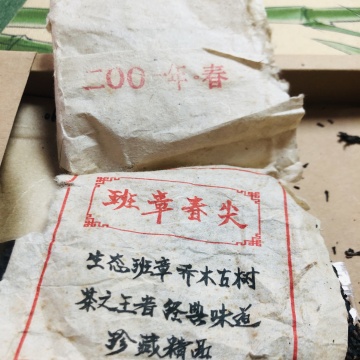 二〇〇一年·春
班章春尖
生态班章乔木古树
茶之王者经典味道
珍藏精品